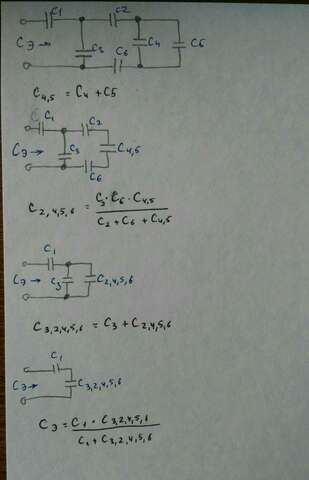 C1 C2
CЭ → C3 C4 C5
C6
C4,5 = C4 + C5
C1 C2
CЭ → C3 C4,5
C6
C2,4,5,6 = C2 · C6 · C4,5 / C2 + C6 + C4,5
C1
CЭ → C3 C2,4,5,6
C3,2,4,5,6 = C3 + C2,4,5,6
C1
CЭ → C3,2,4,5,6
CЭ = C1 · C3,2,4,5,6 / C1 + C3,2,4,5,6